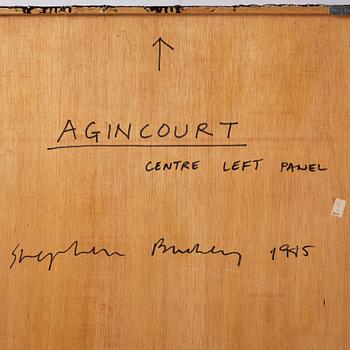 AGINCOURT
CENTRE LEFT PANEL
Stephen Buckley